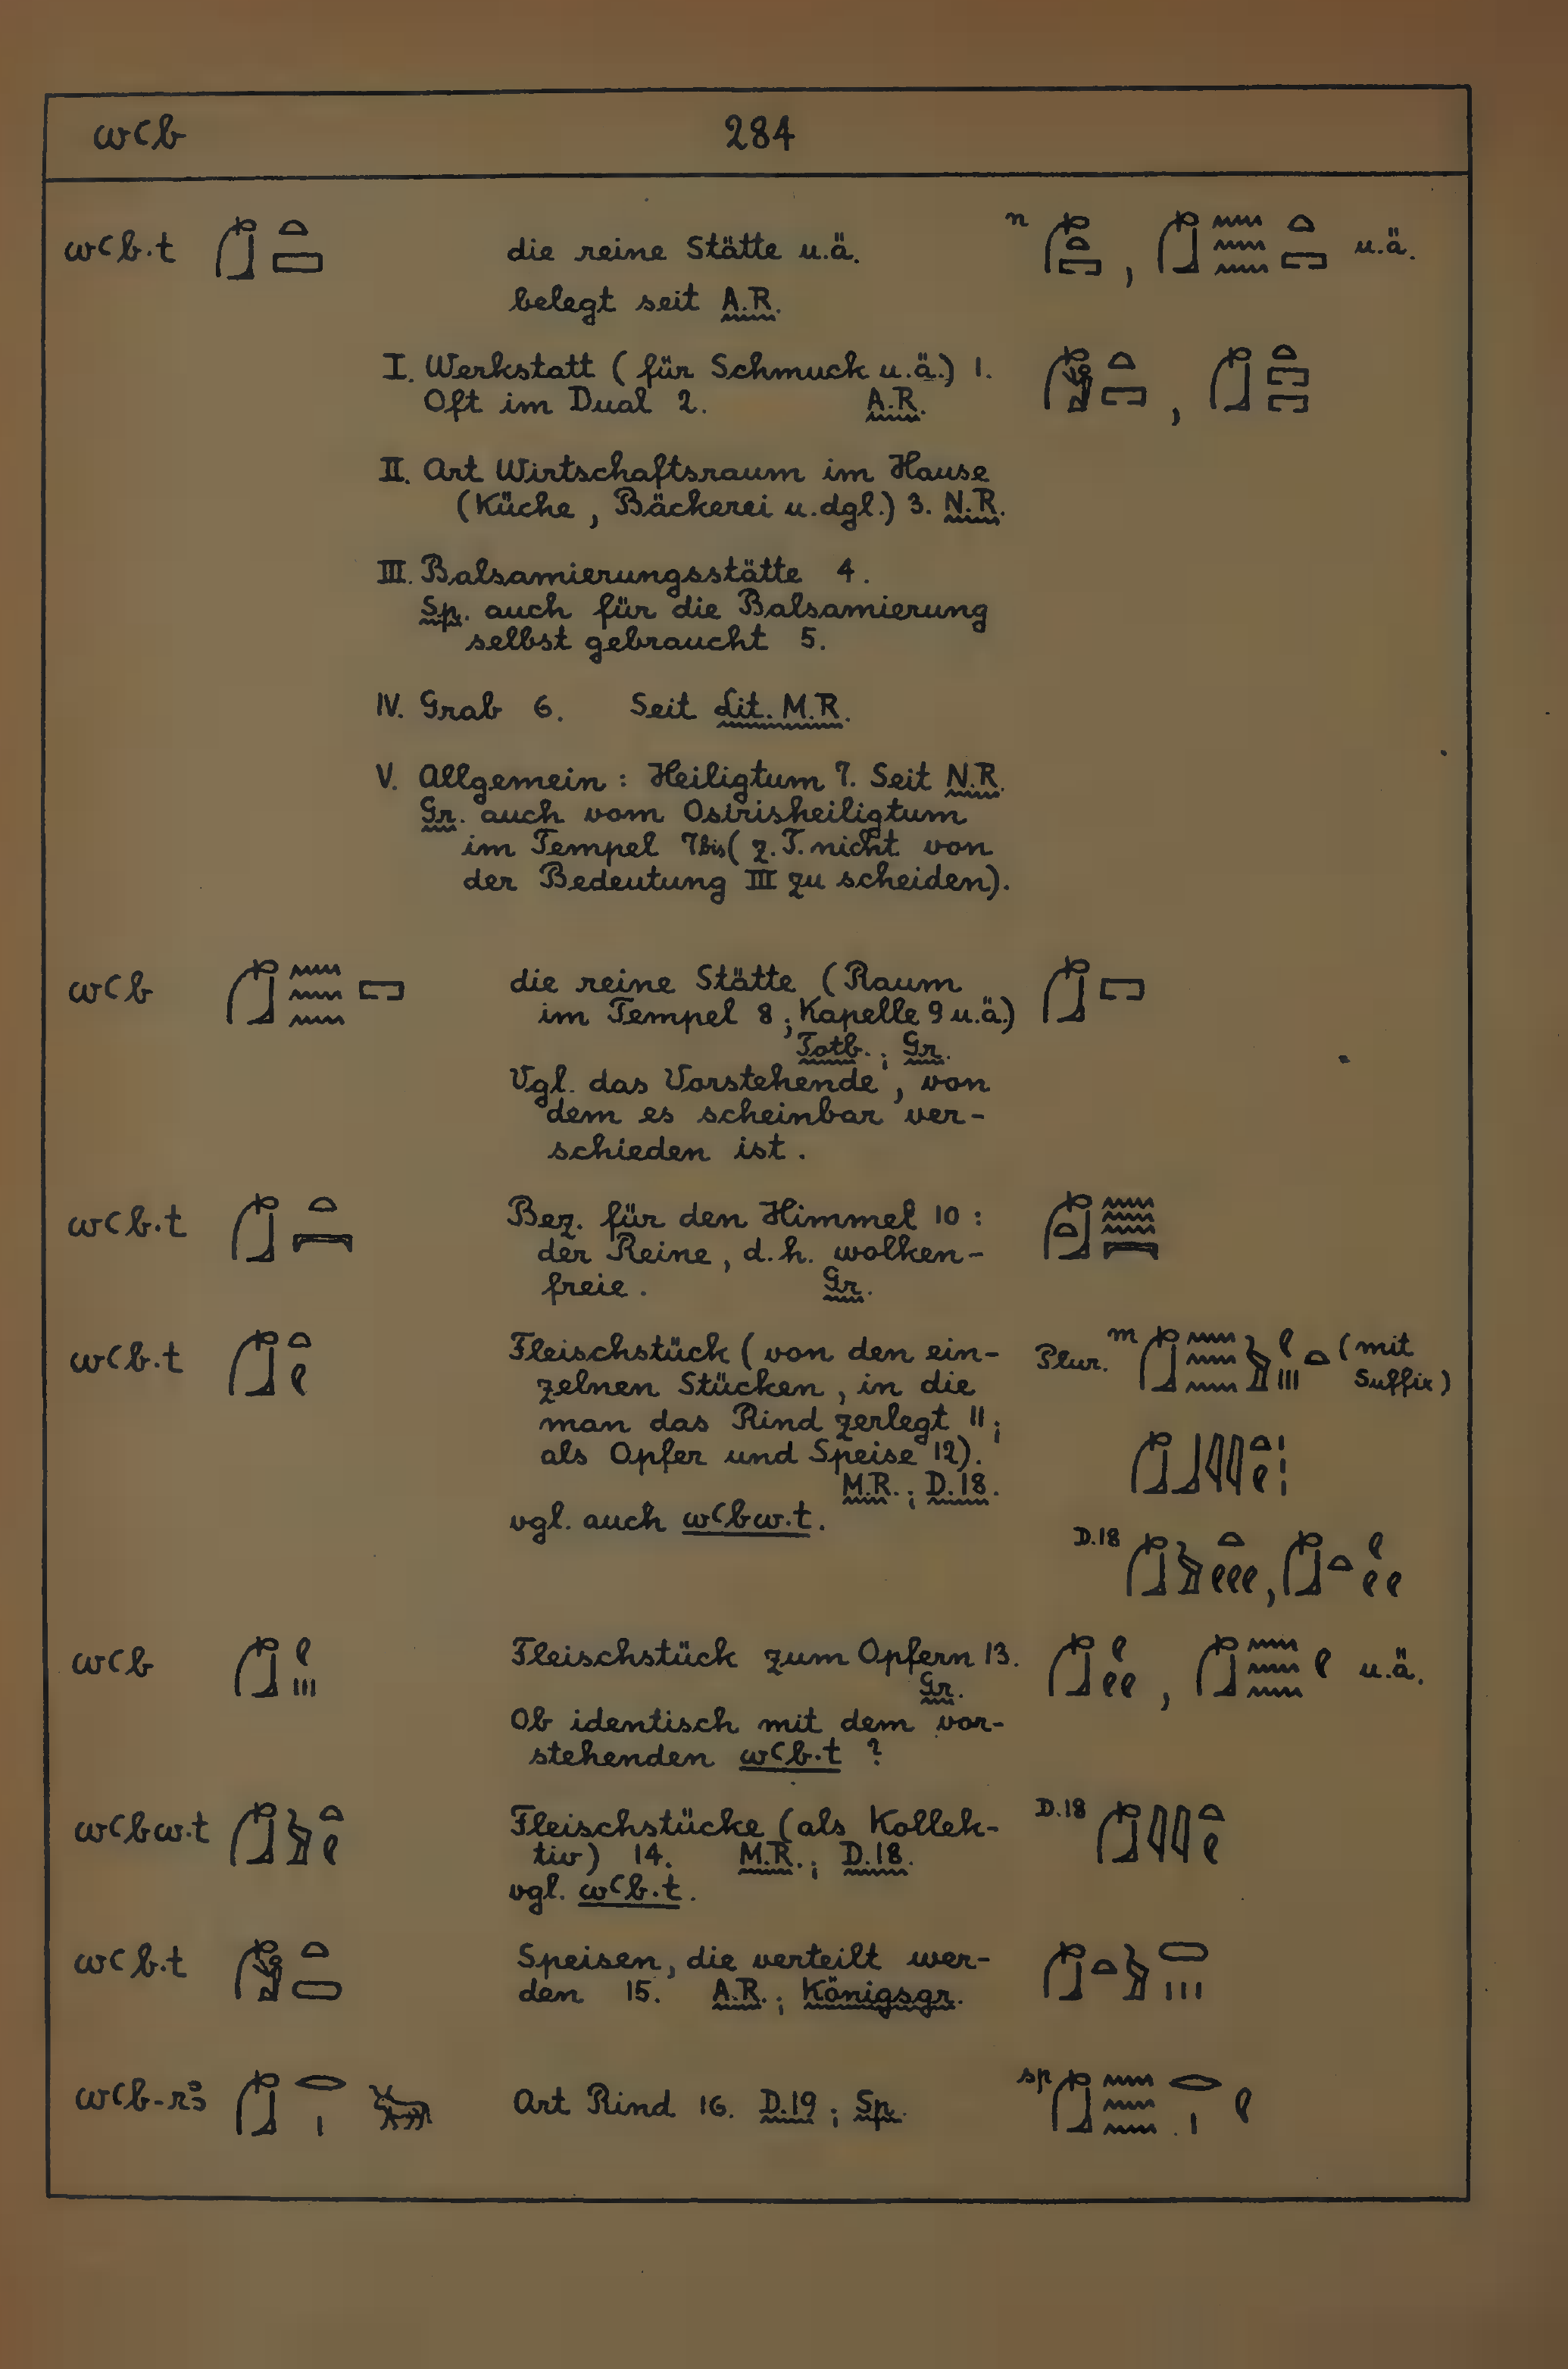 wꜥb 284
wꜥb.t die reine Stätte u.ä. n , u.ä.
belegt seit A.R.
I. Werkstatt (für Schmuck u.ä.) 1. ,
Oft im Dual 2. A.R.
II. Art Wirtschaftsraum im Hause
(Küche, Bäckerei u.dgl.) 3. N.R.
III. Balsamierungsstätte 4.
Sp. auch für die Balsamierung
selbst gebraucht 5.
IV. Grab 6. Seit Lit. M.R.
V. Allgemein: Heiligtum 7. Seit N.R.
Gr. auch vom Osirisheiligtum
im Tempel 7bis (z.T. nicht von
der Bedeutung III zu scheiden).
wꜥb die reine Stätte (Raum
im Tempel 8; Kapelle 9 u.ä.)
Totb.; Gr.
Vgl. das Vorstehende, von
dem es scheinbar ver-
schieden ist.
wꜥb.t Bez. für den Himmel 10:
der Reine, d.h. wolken-
freie. Gr.
wꜥb.t Fleischstück (von den ein- Plur. m (mit
zelnen Stücken, in die Suffix)
man das Rind zerlegt 11;
als Opfer und Speise 12).
M.R.; D.18.
vgl. auch wꜥbw.t. D.18 ,
wꜥb Fleischstück zum Opfern 13. , u.ä.
Gr.
Ob identisch mit dem vor-
stehenden wꜥb.t ?
wꜥbw.t Fleischstücke (als Kollek- D.18
tiv) 14. M.R.; D.18.
vgl. wꜥb.t.
wꜥb.t Speisen, die verteilt wer-
den 15. A.R.; Königsgr.
wꜥb-rꜣ Art Rind 16. D.19; Sp. sp